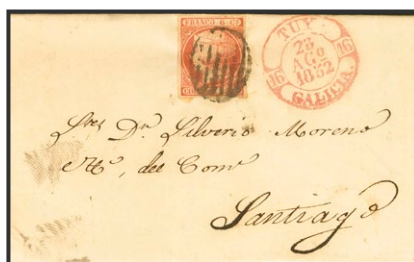 FRANCO 6 Cs
TUY
25
AGo
1852
16 16
GALICIA.
Sres Dn Silverio Moreno
del Come
Santiago